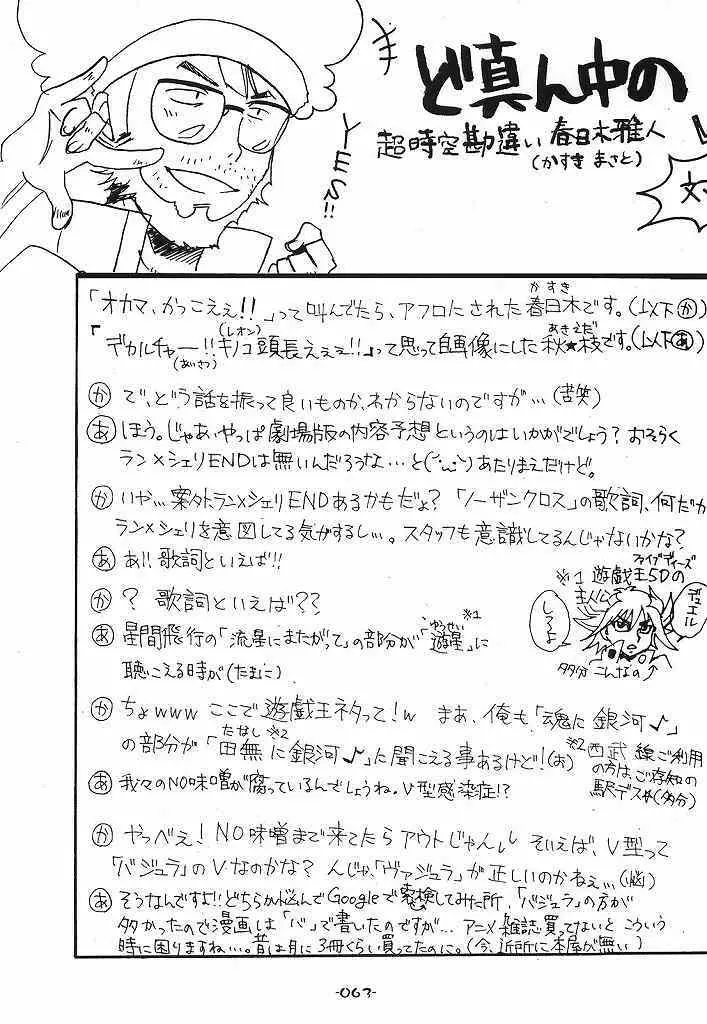 ど真ん中の
超時空勘違い 春日木雅人
(かすき まさと)
YES!!
「オカマ、かっこえぇ!!」って叫んでたら、アフロにされた春日木です。(以下か)
かすき
「デカルチャー!!キノコ頭長えぇぇ!!」って思って自画像にした秋★枝です。(以下あ)
(あいさつ)
(レオン)
あきえだ
か で、どう話を振って良いものか、わからないのですが…(苦笑)
あ ほう。じゃあ、やっぱ劇場版の内容予想というのはいかがでしょう?おそらく
ラン×シェリENDは無いんだろうな…と(´・ω・`)あたりまえだけど。
か いや…案外ラン×シェリENDあるかもだよ?「ノーザンクロス」の歌詞、何だか
ラン×シェリを意図してる気がするし…。スタッフも意識してるんじゃないかな?
あ あ!!歌詞といえば!!
か ? 歌詞といえば??
あ 星間飛行の「流星にまたがって」の部分が「遊星」に
ゆうせい ※1
聴こえる時が(たまに)
※1 遊戯王5Dの
ファイブディーズ
主人公
デュエル
してろよ
多分こんなの
か ちょwww ここで遊戯王ネタって!w まあ、俺も「魂に銀河♪」
の部分が「田無に銀河♪」に聞こえる事あるけど!(お)
たなし ※2
※2 西武線ご利用
の方はご存知の
駅デス☆(多分)
あ 我々のNO味噌が腐っているんでしょうね。V型感染症!?
か やっべえ!NO味噌まで来てたらアウトじゃん そいえば、V型って
「バジュラ」のVなのかな?んじゃ、「ヴァジュラ」が正しいのかねぇ…(悩)
あ そうなんですよ!!どちらか悩んでGoogleで検索してみた所、「バジュラ」の方が
多かったので漫画は「バ」で書いたのですが… アニメ雑誌買ってないとこういう
時に困りますねぃ…。昔は月に3冊くらい買ってたのに。(今、近所に本屋が無い)
-063-